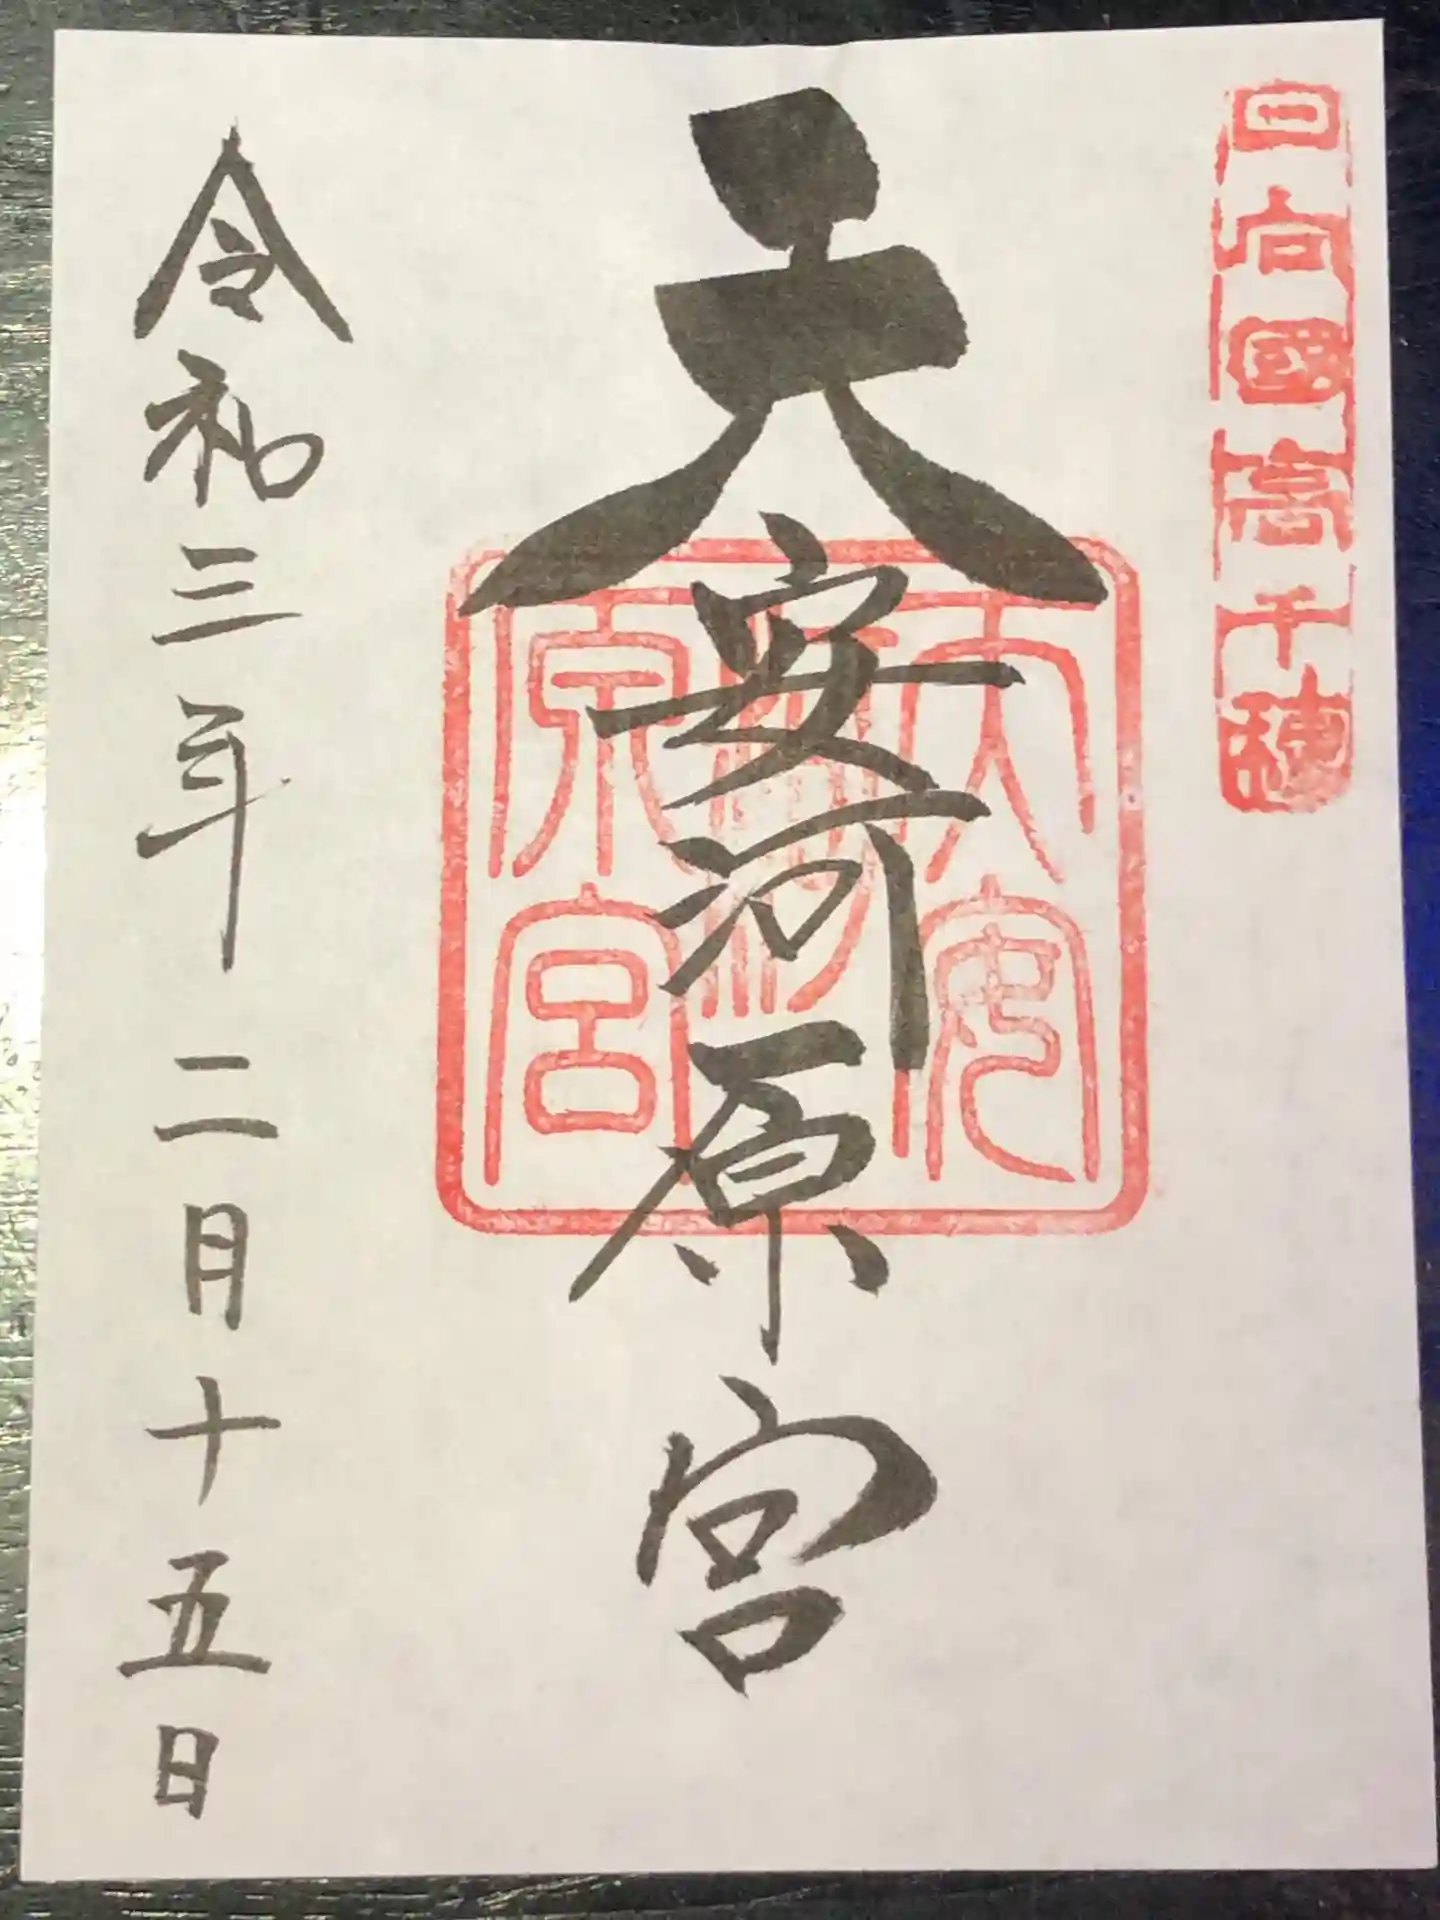 日向國高千穂
天安河原宮
天安河原宮
令和三年二月十五日